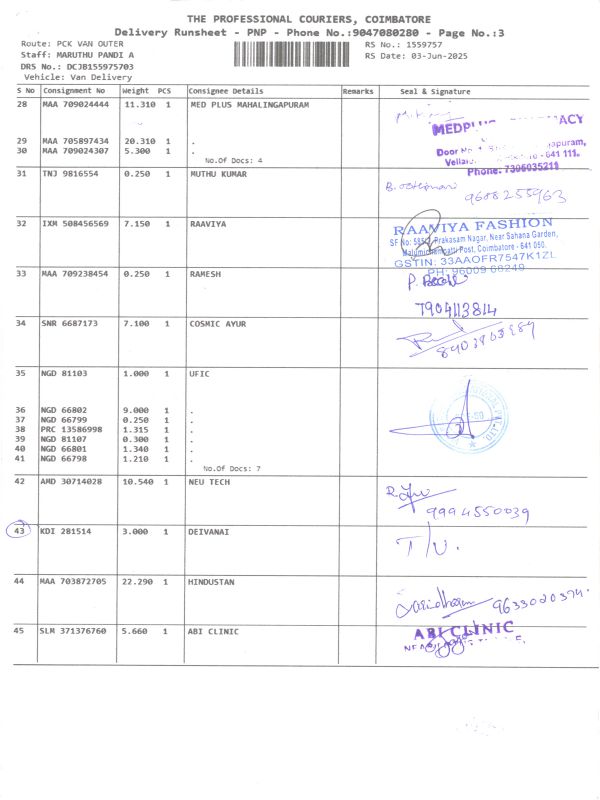 THE PROFESSIONAL COURIERS, COIMBATORE
Delivery Runsheet - PNP - Phone No.:9047080280 - Page No.:3
Route: PCK VAN OUTER
RS No.: 1559757
Staff: MARUTHU PANDI A
RS Date: 03-Jun-2025
DRS No.: DCJB155975703
Vehicle: Van Delivery
S No Consignment No Weight PCS Consignee Details Remarks Seal & Signature
28 MAA 709024444 11.310 1 MED PLUS MAHALINGAPURAM
29 MAA 705897434 20.310 1 .
30 MAA 709024307 5.300 1 .
No.Of Docs: 4
MEDPLUS ACY
Door No
641 111.
Phone: 7306035211
31 TNJ 9816554 0.250 1 MUTHU KUMAR
9688255963
32 IXM 508456569 7.150 1 RAAVIYA
RAAVIYA FASHION
Prakasam Nagar, Near Sahana Garden,
Post, Coimbatore - 641 050.
GSTIN: 33AAOFR7547K1ZL
PH: 96009 66249
33 MAA 709238454 0.250 1 RAMESH
7904113814
34 SNR 6687173 7.100 1 COSMIC AYUR
35 NGD 81103 1.000 1 UFIC
36 NGD 66802 9.000 1 .
37 NGD 66799 0.250 1 .
38 PRC 13586998 1.315 1 .
39 NGD 81107 0.300 1 .
40 NGD 66801 1.340 1 .
41 NGD 66798 1.210 1 .
No.Of Docs: 7
42 AMD 30714028 10.540 1 NEU TECH
9994550039
43 KDI 281514 3.000 1 DEIVANAI
T/V.
44 MAA 703872705 22.290 1 HINDUSTAN
9633020374
45 SLM 371376760 5.660 1 ABI CLINIC
ABI CLINIC